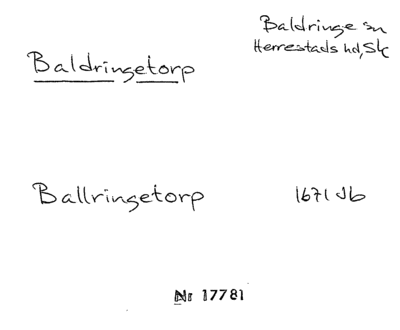 Baldringe sn
Herrestads hd, Sk
Baldringetorp
Ballringetorp 1671 Jb
Nr 17781